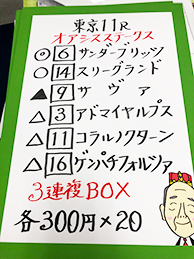 東京11R
オアシスステークス
◎ 6 サンダーブリッツ
○ 14 スリーグランド
▲ 9 サヴァ
△ 3 アドマイヤルプス
△ 11 コラルノクターン
△ 16 ゲンパチフォルツァ
3連複BOX
各300円×20